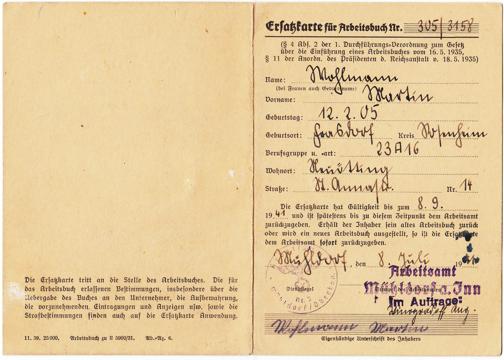 Die Ersatzkarte tritt an die Stelle des Arbeitsbuches. Die für
das Arbeitsbuch erlassenen Bestimmungen, insbesondere über die
Uebergabe des Buches an den Unternehmer, die Aufbewahrung,
die vorzunehmenden Eintragungen und Anzeigen usw. sowie die
Strafbestimmungen finden auch auf die Ersatzkarte Anwendung.
11. 39. 25000. Arbeitsbuch zu
Ersatzkarte für Arbeitsbuch Nr. 305/3158
(§ 4 Abs. 2 der 1. Durchführungs-Verordnung zum Gesetz
über die Einführung eines Arbeitsbuches vom 16. 5. 1935,
§ 11 der Anordn. des Präsidenten d. Reichsanstalt v. 18. 5. 1935)
Name: Wohlmann
(bei Frauen auch Geburtsname)
Vorname: Martin
Geburtstag: 12. 2. 05
Geburtsort: Frasdorf Kreis Rosenheim
Berufsgruppe u. -art: 23A16
Wohnort: Neuötting
Straße: St. Annastr. Nr. 14
Die Ersatzkarte hat Gültigkeit bis zum 8. 9.
1941 und ist spätestens bis zu diesem Zeitpunkt dem Arbeitsamt
zurückzugeben. Erhält der Inhaber sein altes Arbeitsbuch zurück
oder wird ein neues Arbeitsbuch ausgestellt, so ist die Ersatzkarte
dem Arbeitsamt sofort zurückzugeben.
Mühldorf, den 8. Juli 19
Arbeitsamt
Mühldorf a. Inn
Im Auftrage:
Dienstsiegel
Wohlmann Martin
Eigenhändige Unterschrift des Inhabers